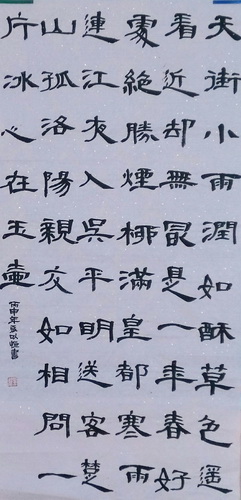 天街小雨潤如酥草色遙
看近却無最是一年春好
處絕勝煙柳滿皇都寒雨
連江夜入吳平明送客楚
山孤洛陽親友如相問一
片冰心在玉壺
丙申年書